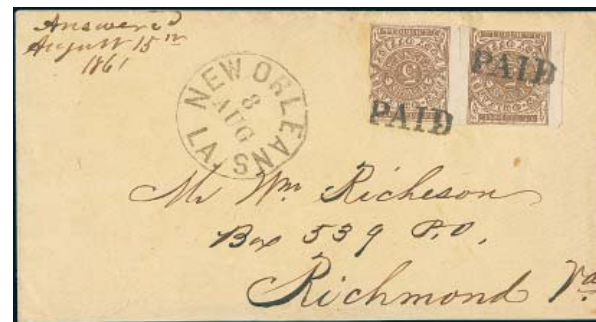 Answered
August 15th
1861
NEW ORLEANS
LA.
8
AUG
5
PAID
5
PAID
Mr Wm. Richeson
Box 539 P.O.
Richmond Va